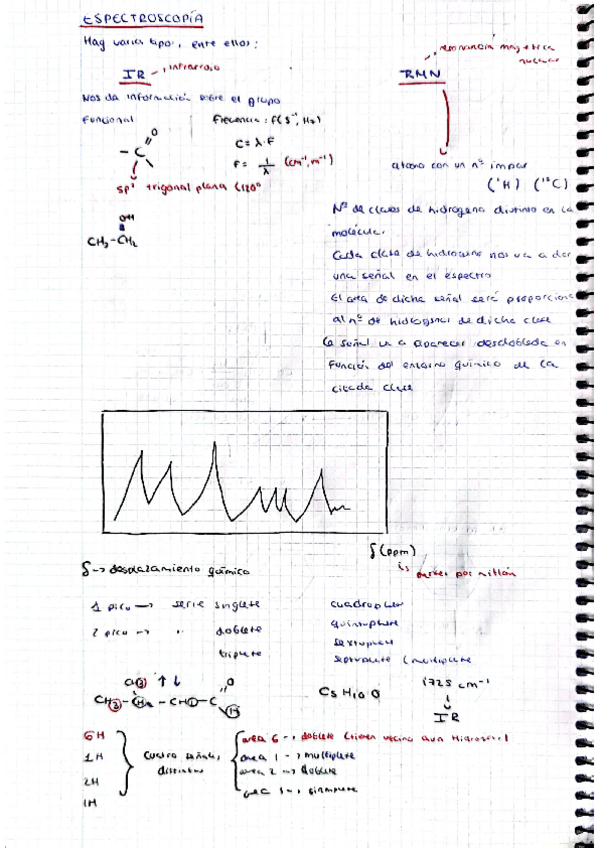 ESPECTROSCOPÍA
Hay varios tipos, entre ellos:
IR → infrarrojo
Nos da información sobre el grupo
funcional
Frecuencia: f(s⁻¹, Hz)
C = λ·F
F = 1/λ (cm⁻¹, m⁻¹)
O
– C
sp² trigonal plana (120º
OH
CH₃-CH₂
resonancia magnética
nuclear
RMN
átomo con un nº impar
(¹H) (¹³C)
Nº de clases de hidrógeno distinto en la
molécula.
Cada clase de hidrógeno nos va a dar
una señal en el espectro
El area de dicha señal será proporcional
al nº de hidrógenos de dicha clase
La señal va a aparecer desdoblada en
función del entorno químico de la
citada clase
δ (ppm)
partes por millón
δ → desplazamiento químico
1 pico → serie singlete
2 pico → " doblete
triplete
cuadruplete
quintuplete
sextuplete
septuplete (multiplete
CH3 ↑ ↓ O
C5 H10 O
1725 cm⁻¹
↓
IR
6H
1H
2H
1H
cuatro señales
distintas
area 6 → doblete (tienen vecino a un hidrógeno)
area 1 → multiplete
area 2 → doblete